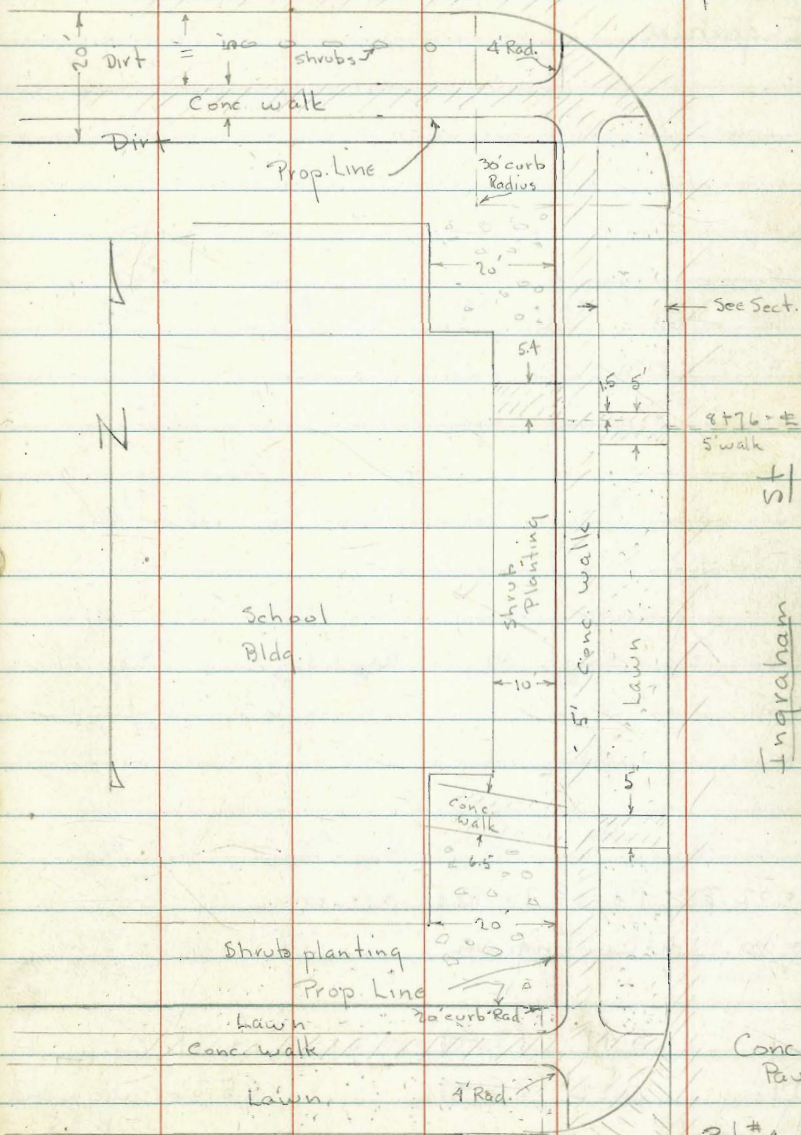 20'
Dirt
11
shrubs
4' Rad.
Conc. walk
Dirt
Prop. Line
30' curb
Radius
20'
See Sect.
5.4
1.5 5'
8+76 = ⅊
5' walk
St
N
Shrub
Planting
5' Conc. walk
School
Bldg.
Lawn
Ingraham
10'
5'
Conc.
walk
6.5
20'
Shrub planting
Prop. Line
20' curb Rad.
Lawn
Conc. walk
Conc.
Lawn
4' Rad.